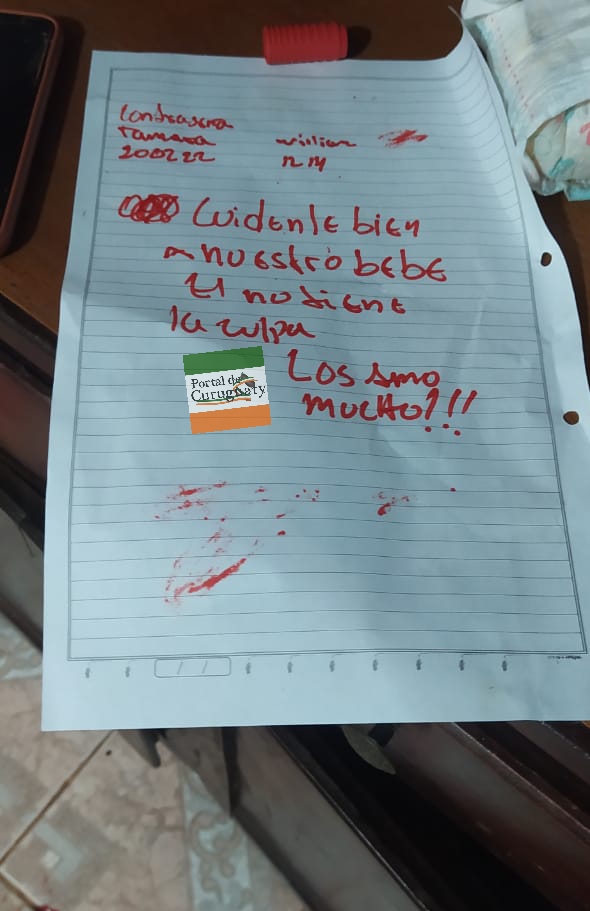 Contrasena
Tamara
200222
wilian
1214
Cuidenle bien
a nuestro bebe
El no tiene
la culpa
Los Amo
mucho!!!
Portal de
Curuguaty